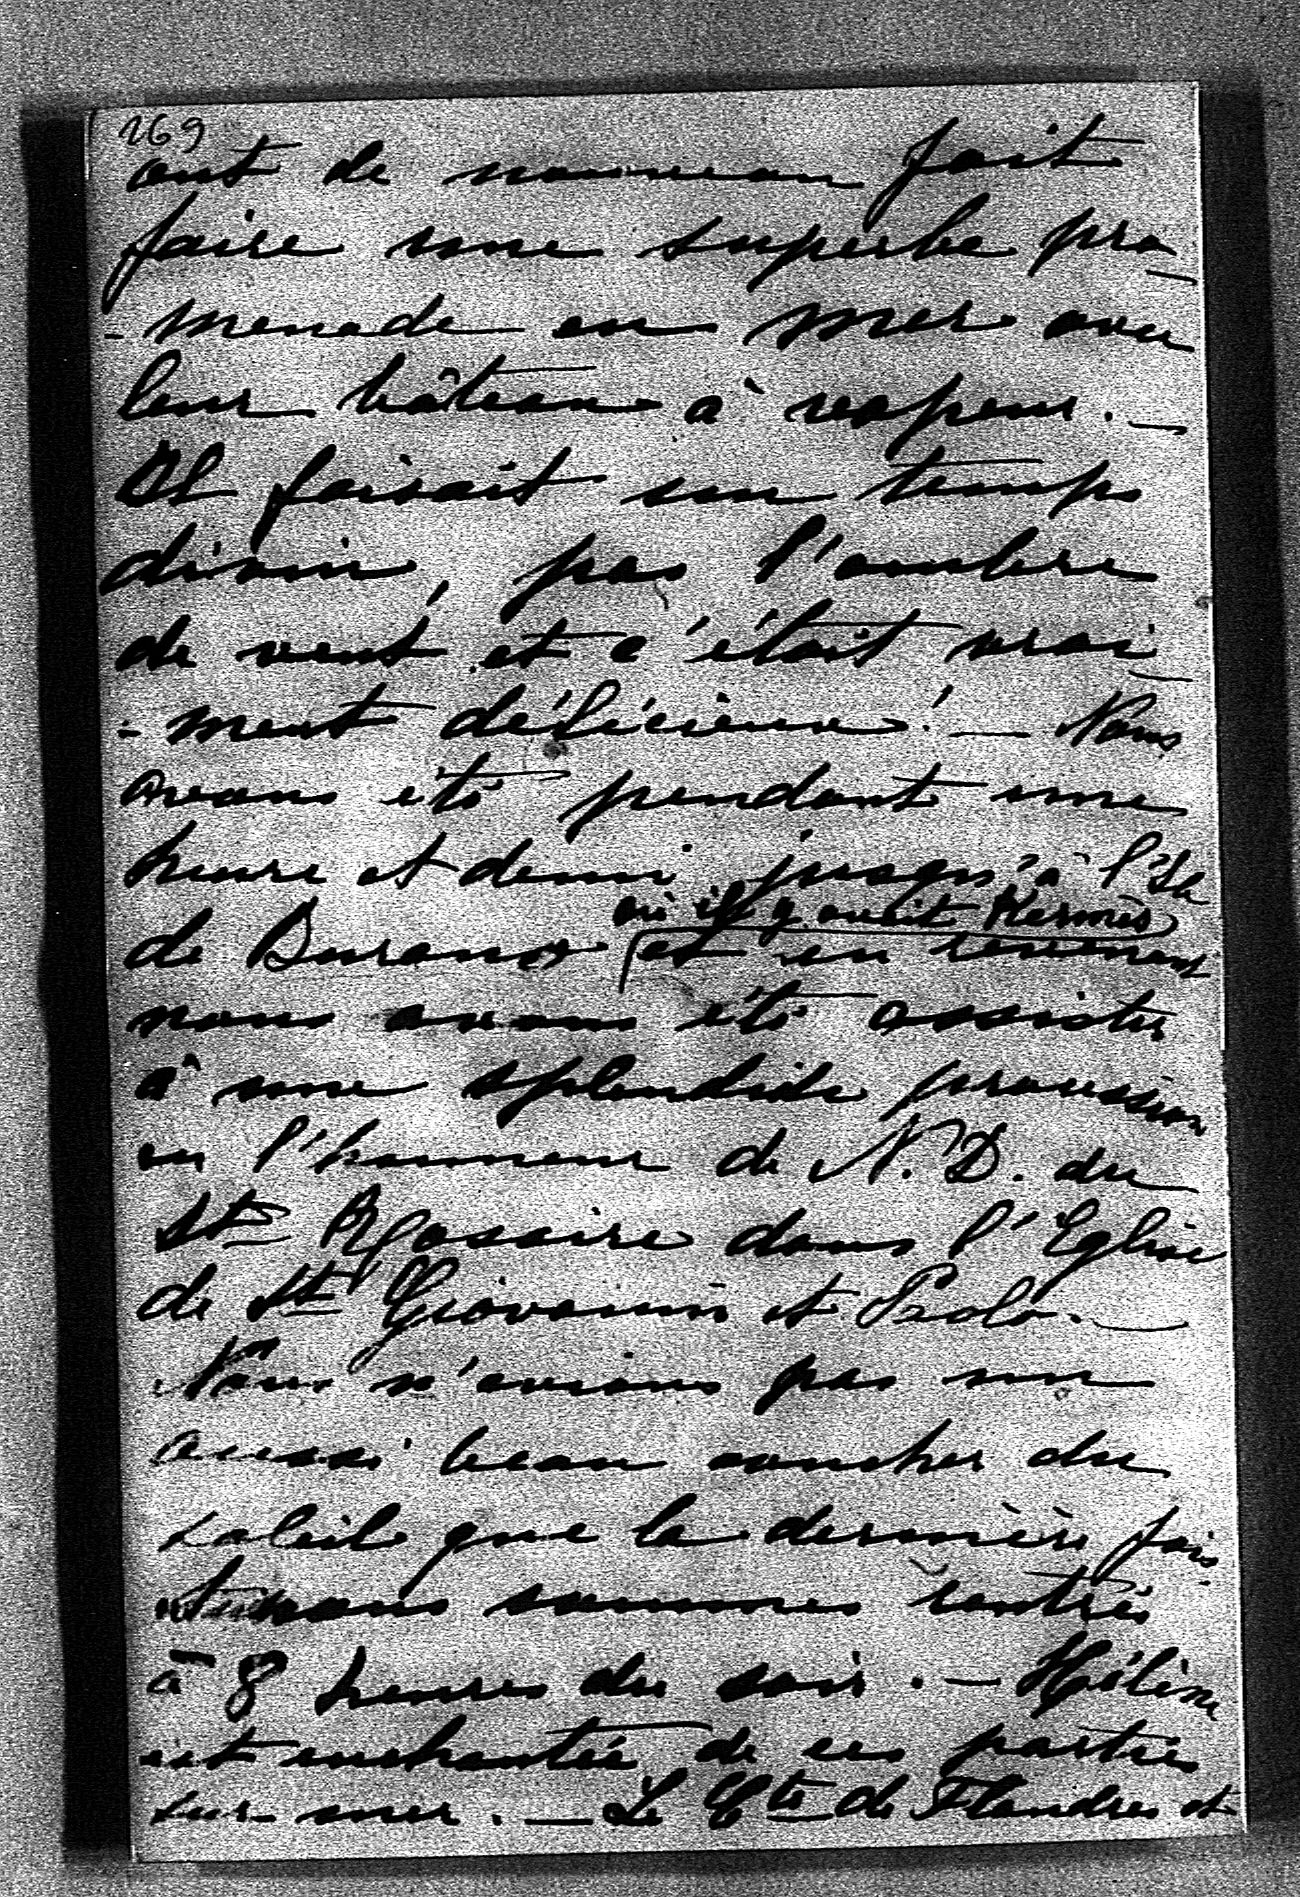 269
ont de nouveau fait
faire une superbe pro
-menade en mer avec
leur bâteau à vapeur. —
Il faisait un temps
divin, pas l'ombre
de vent et c'était vrai
-ment délicieux! — Nous
avons été pendant une
heure et demi jusqu'à l'Ile
où il y avait Kermès
de Burano et en revenant
nous avons été assister
à une splendide procession
en l'honneur de N. D. du
St Rosaire dans l'Eglise
de St Giovanni et Paolo. —
Nous n'avions pas un
aussi beau coucher du
soleil que la dernière fois
et nous sommes rentrés
à 8 heures du soir. — Hélène
est enchantée de ces parties
sur mer. — Le Cte de Flandres et